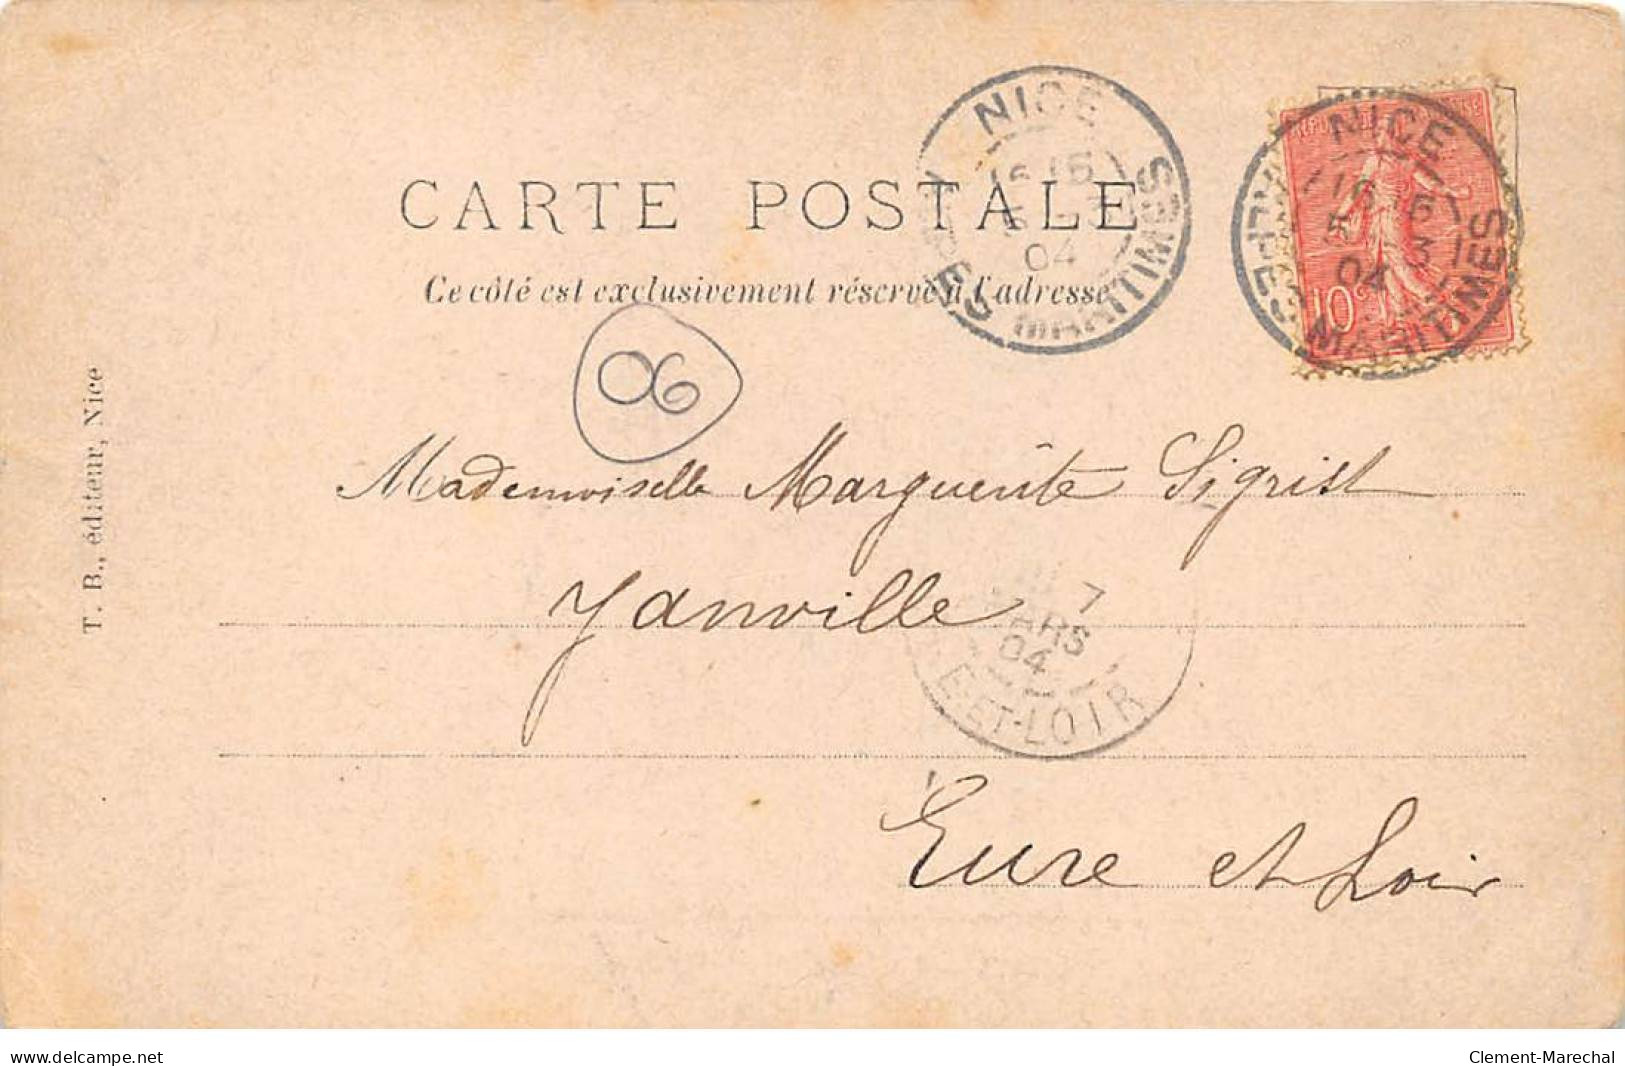 CARTE POSTALE
Ce côté est exclusivement réservé à l'adresse
NICE
04
MARITIMES
NICE
16 15
5 3
04
ALPES MARITIMES
10c
06
T. B., éditeur, Nice
Mademoiselle Marguerite Sigrist
Janville
7
MARS
04
E-ET-LOIR
Eure et Loir
www.delcampe.net
Clement-Marechal